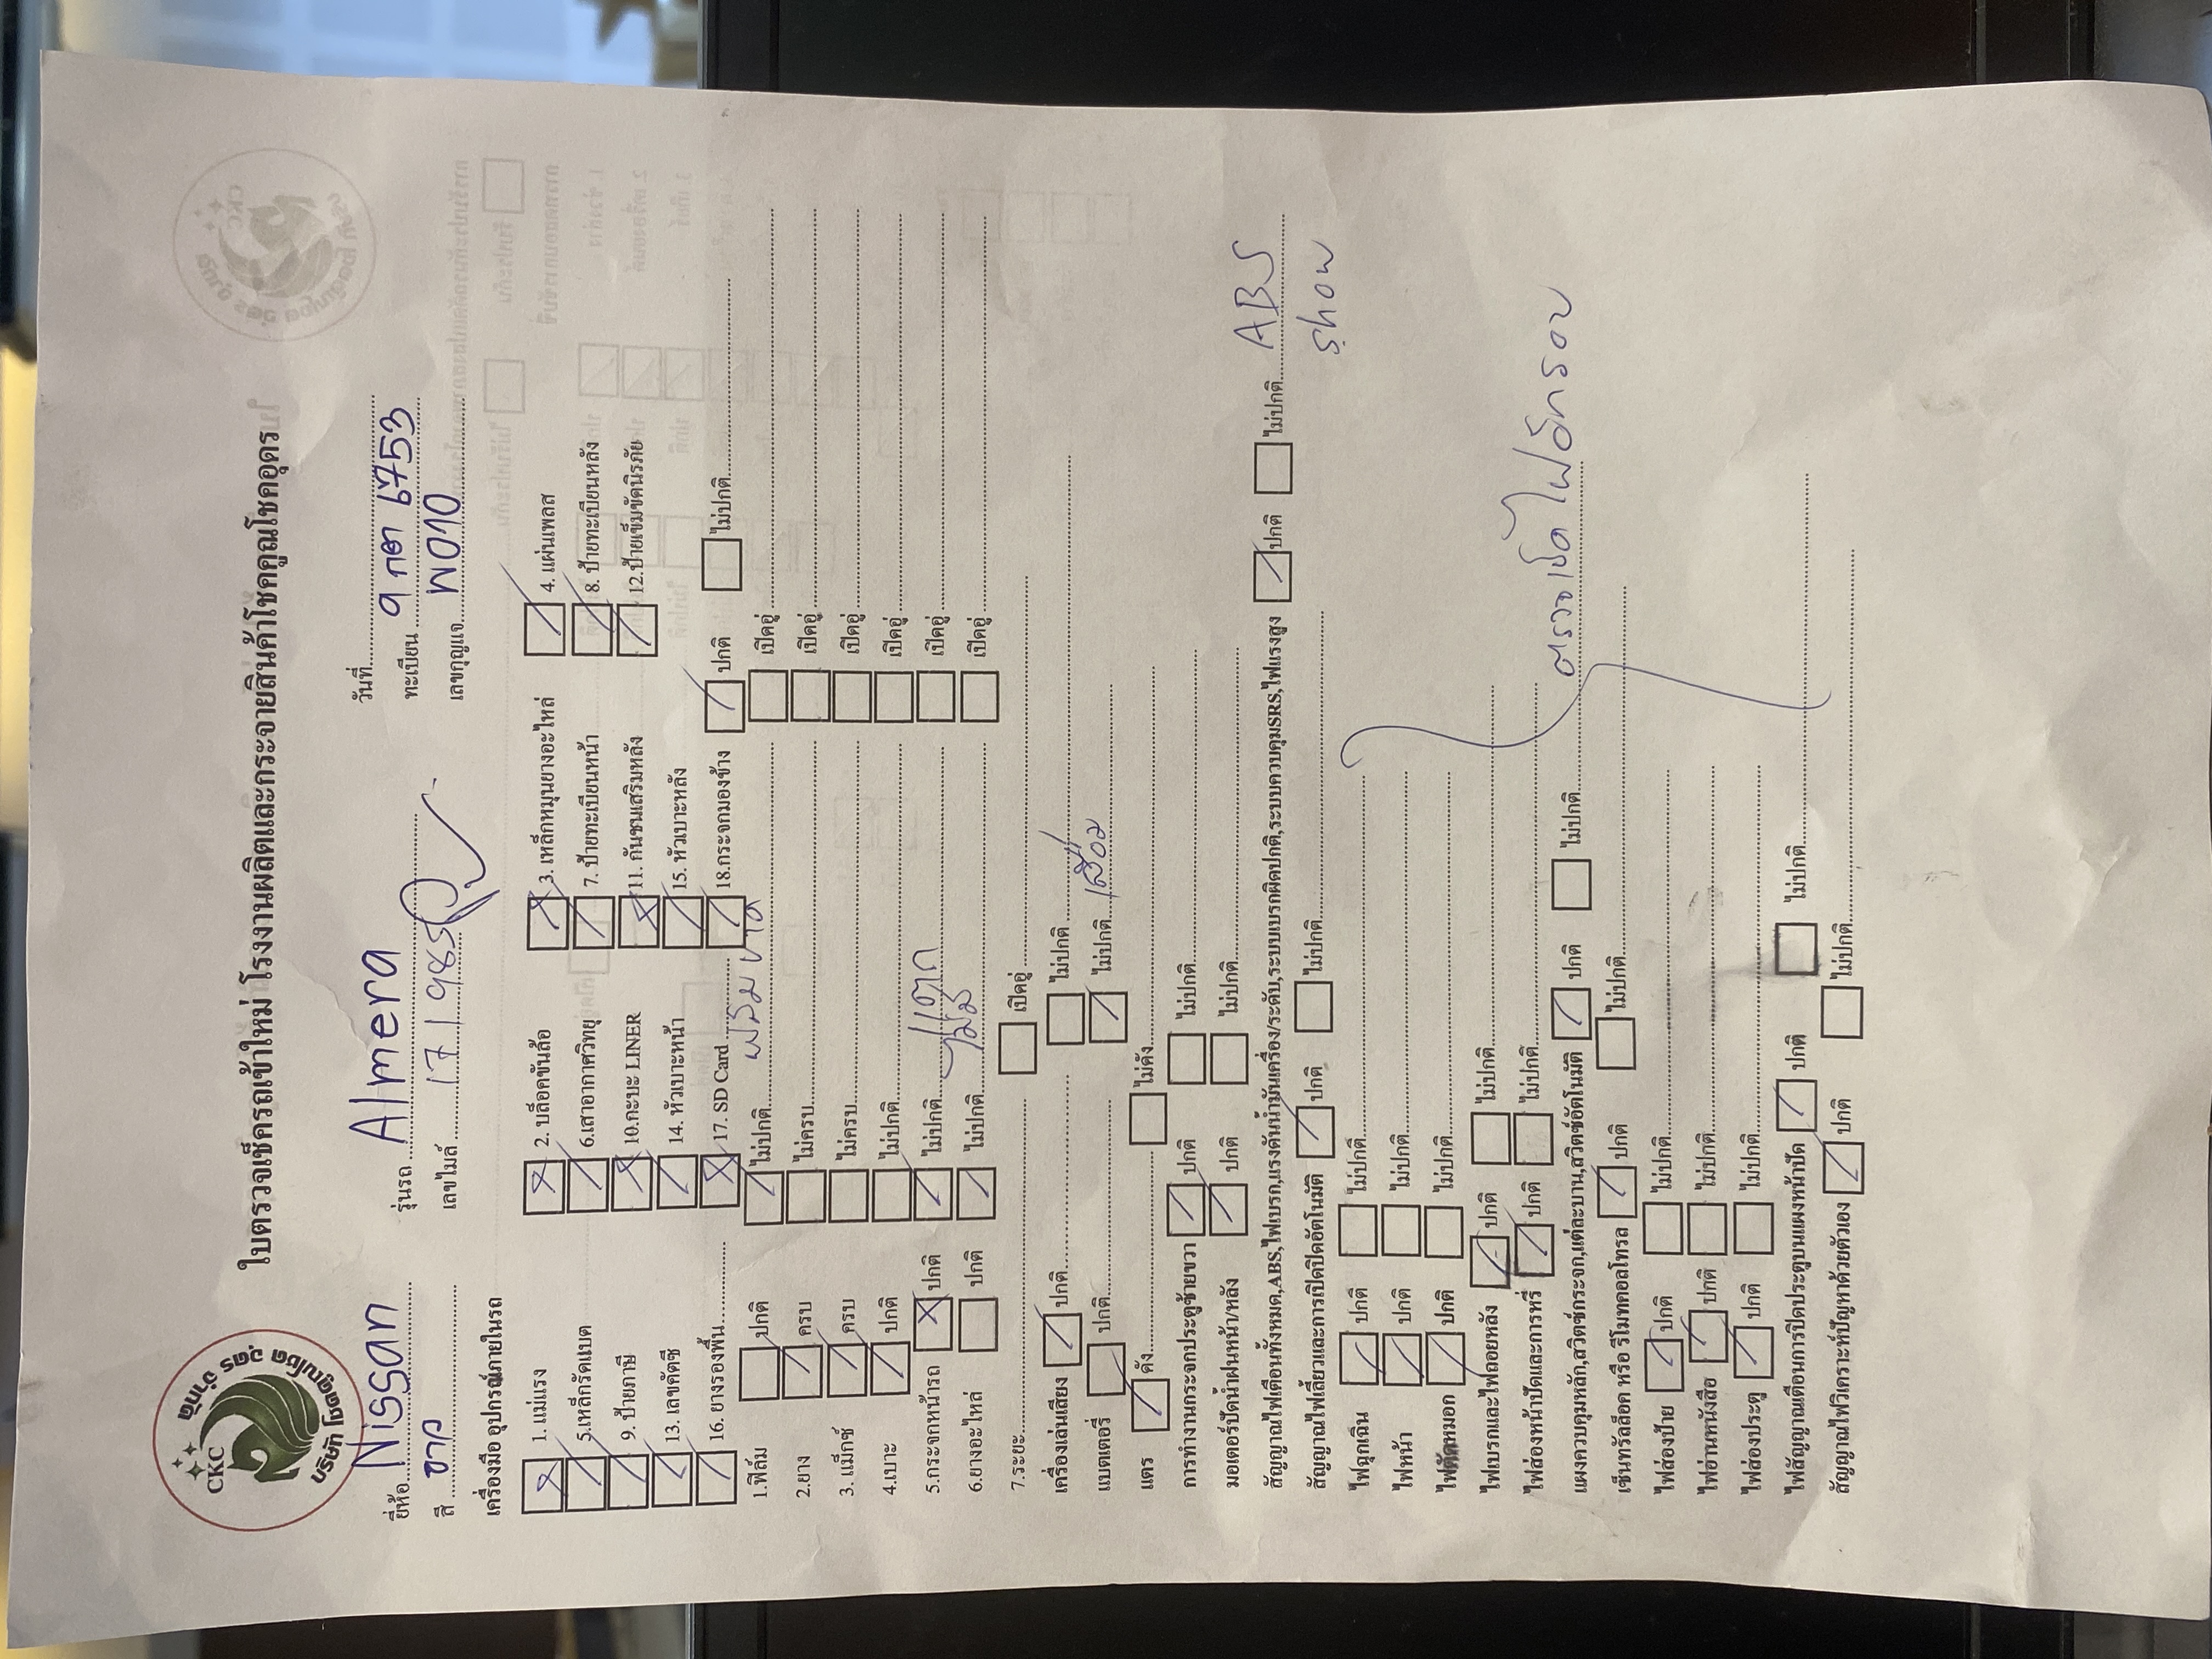 CKC
บริษัท โชคคูณโชค อุดร จำกัด
ใบตรวจเช็ครถเข้าใหม่ โรงงานผลิตและกระจายสินค้าโชคคูณโชคอุดร
ยี่ห้อ Nissan รุ่นรถ Almera วันที่
สี ขาว เลขไมล์ ทะเบียน 9 กต 6753
เลขกุญแจ W010
เครื่องมือ อุปกรณ์ภายในรถ
1. แม่แรง 2. บล็อคขันล้อ 3. เหล็กหมุนยางอะไหล่ 4. แผ่นเพลส
5.เหล็กรัดแบต 6.เสาอากาศวิทยุ 7. ป้ายทะเบียนหน้า 8. ป้ายทะเบียนหลัง
9. ป้ายภาษี 10.กะบะ LINER 11. กันชนเสริมหลัง 12.ป้ายเข็มขัดนิรภัย
13. เลขคัตซี 14. หัวเบาะหน้า 15. หัวเบาะหลัง
16. ยางรองพื้น 17. SD Card 18.กระจกมองข้าง ปกติ ไม่ปกติ
1.ฟิล์ม ปกติ ไม่ปกติ ฟิล์ม ขาด เปิดอู่
2.ยาง ครบ ไม่ครบ เปิดอู่
3. แม็กซ์ ครบ ไม่ครบ เปิดอู่
4.เบาะ ปกติ ไม่ปกติ เปิดอู่
5.กระจกหน้ารถ ปกติ ไม่ปกติ แตก เปิดอู่
6.ยางอะไหล่ ปกติ ไม่ปกติ ไม่มี เปิดอู่
7.ระยะ เปิดอู่
เครื่องเล่นเสียง ปกติ ไม่ปกติ
แบตเตอรี่ ปกติ ไม่ปกติ เสื่อม
แตร ดัง ไม่ดัง
การทำงานกระจกประตูซ้ายขวา ปกติ ไม่ปกติ
มอเตอร์ปัดน้ำฝนหน้า/หลัง ปกติ ไม่ปกติ
สัญญาณไฟเตือนทั้งหมด,ABS,ไฟเบรก,แรงดันน้ำมันเครื่อง/ระดับ,ระบบเบรกผิดปกติ,ระบบควบคุมSRS,ไฟแรงสูง ปกติ ไม่ปกติ ABS
show
สัญญาณไฟเลี้ยวและการเปิดปิดอัตโนมัติ ปกติ ไม่ปกติ
ไฟฉุกเฉิน ปกติ ไม่ปกติ
ไฟหน้า ปกติ ไม่ปกติ
ไฟตัดหมอก ปกติ ไม่ปกติ
ไฟเบรกและไฟถอยหลัง ปกติ ไม่ปกติ
ไฟส่องหน้าปัดและการหรี่ ปกติ ไม่ปกติ
ตรวจเช็ดไฟอีกรอบ
แผงควบคุมหลัก,สวิตช์กระจก,แต่ละบาน,สวิตช์อัตโนมัติ ปกติ ไม่ปกติ
เซ็นทรัลล็อค หรือ รีโมทคอลโทรล ปกติ ไม่ปกติ
ไฟส่องป้าย ปกติ ไม่ปกติ
ไฟอ่านหนังสือ ปกติ ไม่ปกติ
ไฟส่องประตู ปกติ ไม่ปกติ
ไฟสัญญาณเตือนการปิดประตูบนแผงหน้าปัด ปกติ ไม่ปกติ
สัญญาณไฟวิเคราะห์ปัญหาด้วยตัวเอง ปกติ ไม่ปกติ